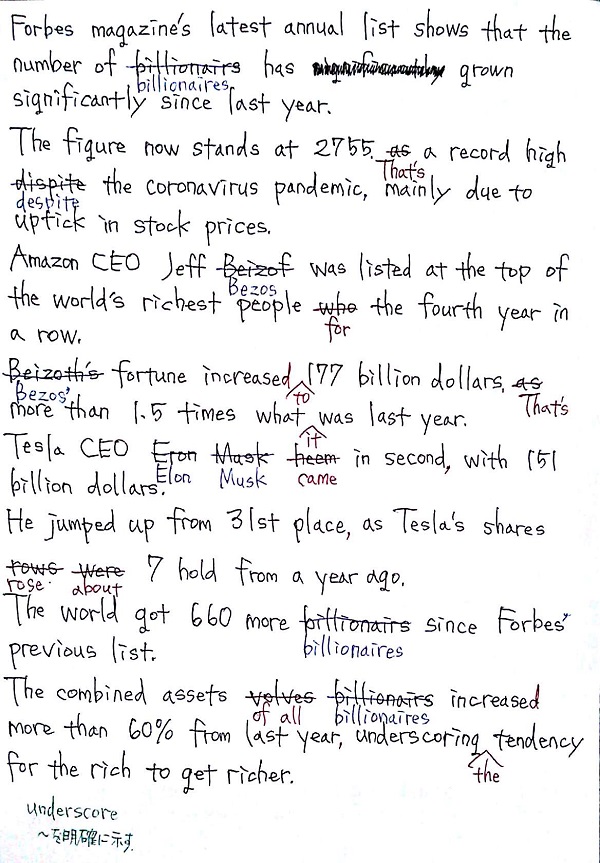 Forbes magazine's latest annual list shows that the
number of billionairs has grown
billionaires
significantly since last year.
The figure now stands at 2755. as a record high
That's
dispite the coronavirus pandemic, mainly due to
despite
uptick in stock prices.
Amazon CEO Jeff Beizof was listed at the top of
Bezos
the world's richest people who the fourth year in
for
a row.
Beizoth's fortune increased 177 billion dollars, as
Bezos' to That's
more than 1.5 times what was last year.
it
Tesla CEO Eron Musk heem in second, with 151
Elon Musk came
billion dollars.
He jumped up from 31st place, as Tesla's shares
rows were 7 hold from a year ago.
rose about
The world got 660 more billionairs since Forbes'
billionaires
previous list.
The combined assets volves billionairs increased
of all billionaires
more than 60% from last year, underscoring tendency
the
for the rich to get richer.
underscore
〜を明確に示す